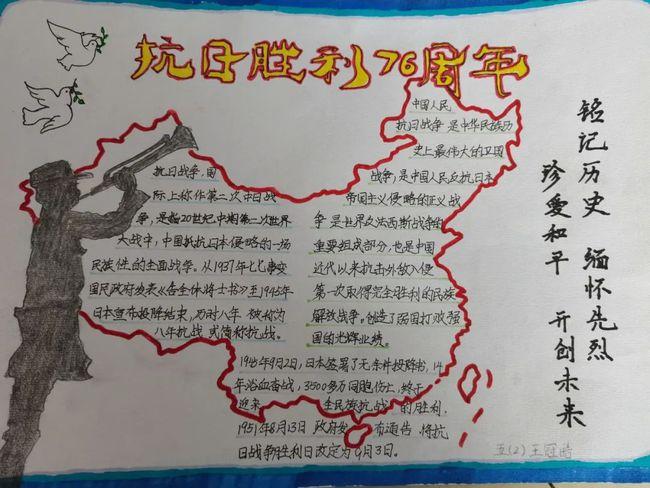 抗日胜利76周年
抗日战争，国
际上称作第二次中日战
争，是指20世纪中期第二次世界
大战中，中国抵抗日本侵略的一场
民族性的全面战争。从1937年七七事变
国民政府发表《告全体将士书》至1945年
日本宣布投降结束，历时八年 被称为
八年抗战 或简称抗战。
中国人民
抗日战争 是中华民族历
史上最伟大的卫国
战争，是中国人民反抗日本
帝国主义侵略的正义战
争 是世界反法西斯战争的
重要组成部分，也是中国
近代以来抗击外敌入侵
第一次取得完全胜利的民族
解放战争，创造了弱国打败强
国的光辉业绩。
1945年9月2日，日本签署了无条件投降书，14
年浴血奋战，3500多万同胞伤亡，终于
迎来 全民族抗战 的胜利，
1951年8月13日 政府发 布通告 将抗
日战争胜利日改定为9月3日。
铭记历史 缅怀先烈
珍爱和平 开创未来
五(2) 王冠皓